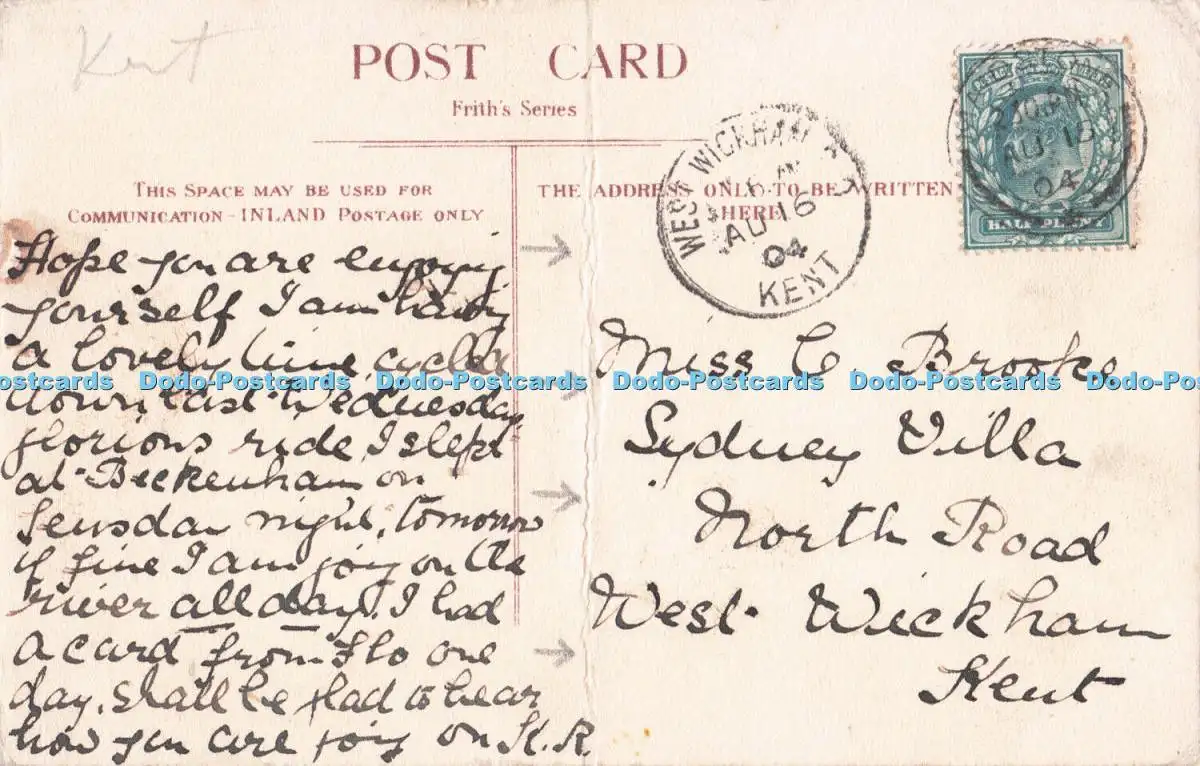 Kent
POST CARD
Frith's Series
THIS SPACE MAY BE USED FOR
COMMUNICATION - INLAND POSTAGE ONLY
THE ADDRESS ONLY TO BE WRITTEN
HERE
WEST WICKHAM
AU 16
04
KENT
POSTAGE REVENUE
230PM
AU 16
04
HALF PENNY
Hope you are enjoying
yourself I am having
a lovely time, cycled
down last Wednesday
glorious ride, I slept
at Beckenham on
Teusday night, tomorrow
if fine I am going on the
river all day. I had
a card from Flo one
day, shall be glad to hear
how you are going on K.R.
Miss C Brooke
Sydney Villa
North Road
West Wickham
Kent
Dodo-Postcards Dodo-Postcards Dodo-Postcards Dodo-Postcards Dodo-Postcards Dodo-Postcards